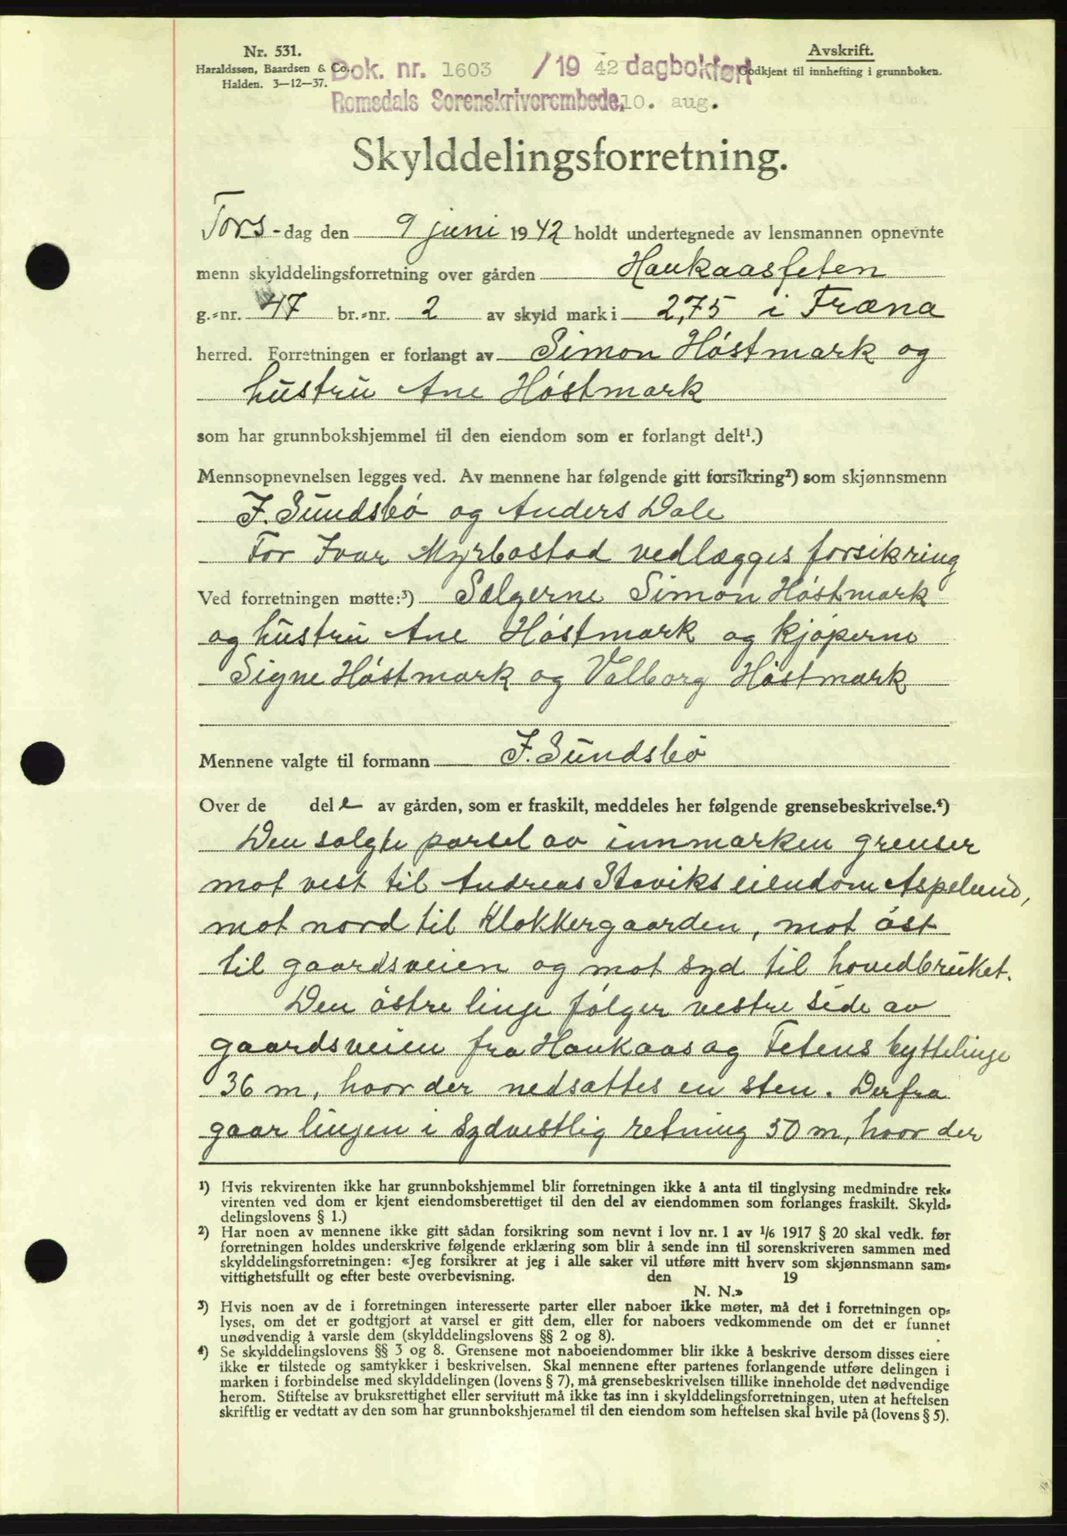 Nr. 531.
Haraldssøn, Baardsen & Co.,
Halden. 3-12-37.
Avskrift.
Godkjent til innhefting i grunnboken.
Dok. nr. 1603 /19 42 dagbokført
Romsdals Sorenskriverembede, 10. aug.
Skylddelingsforretning.
Tors-dag den 9 juni 1942 holdt undertegnede av lensmannen opnevnte
menn skylddelingsforretning over gården Haukaasfeten
g.-nr. 47 br.-nr. 2 av skyld mark i 2,75 i Fræna
herred. Forretningen er forlangt av Simon Höstmark og
hustru Ane Höstmark
som har grunnbokshjemmel til den eiendom som er forlangt delt¹.)
Mennsopnevnelsen legges ved. Av mennene har følgende gitt forsikring²) som skjønnsmenn
J. Sundsbö og Anders Dale
For Ivar Myrbostad vedlægges forsikring
Ved forretningen møtte:³) Sælgerne Simon Höstmark
og hustru Ane Höstmark og kjöperne
Signe Höstmark og Valborg Höstmark
Mennene valgte til formann J. Sundsbö
Over de del e av gården, som er fraskilt, meddeles her følgende grensebeskrivelse.⁴)
Den solgte parsel av innmarken grenser
mot vest til Andreas Staviks eiendom Aspelund,
mot nord til Klokkergaarden, mot öst
til gaardsveien og mot syd til hovedbruket.
Den östre linje fölger vestre side av
gaardsveien fra Haukaas og Fetens byttelinje
36 m, hvor der nedsættes en sten. Derfra
gaar linjen i sydvestlig retning 50 m, hvor der
¹) Hvis rekvirenten ikke har grunnbokshjemmel blir forretningen ikke å anta til tinglysing medmindre rek-
virenten ved dom er kjent eiendomsberettiget til den del av eiendommen som forlanges fraskilt. Skyld-
delingslovens § 1.)
²) Har noen av mennene ikke gitt sådan forsikring som nevnt i lov nr. 1 av 1/6 1917 § 20 skal vedk. før
forretningen holdes underskrive følgende erklæring som blir å sende inn til sorenskriveren sammen med
skylddelingsforretningen: «Jeg forsikrer at jeg i alle saker vil utføre mitt hverv som skjønnsmann sam-
vittighetsfullt og efter beste overbevisning. den 19
N. N.»
³) Hvis noen av de i forretningen interesserte parter eller naboer ikke møter, må det i forretningen op-
lyses, om det er godtgjort at varsel er gitt dem, eller for naboers vedkommende om det er funnet
unødvendig å varsle dem (skylddelingslovens §§ 2 og 8).
⁴) Se skylddelingslovens §§ 3 og 8. Grensene mot naboeiendommer blir ikke å beskrive dersom disses eiere
ikke er tilstede og samtykker i beskrivelsen. Skal mennene efter partenes forlangende utføre delingen i
marken i forbindelse med skylddelingen (lovens § 7), må grensebeskrivelsen tillike inneholde det nødvendige
herom. Stiftelse av bruksrettighet eller servitutt må ikke tas inn i skylddelingsforretningen, uten at heftelsen
skriftlig er vedtatt av den som har grunnbokshjemmel til den eiendom som heftelsen skal hvile på (lovens § 5).